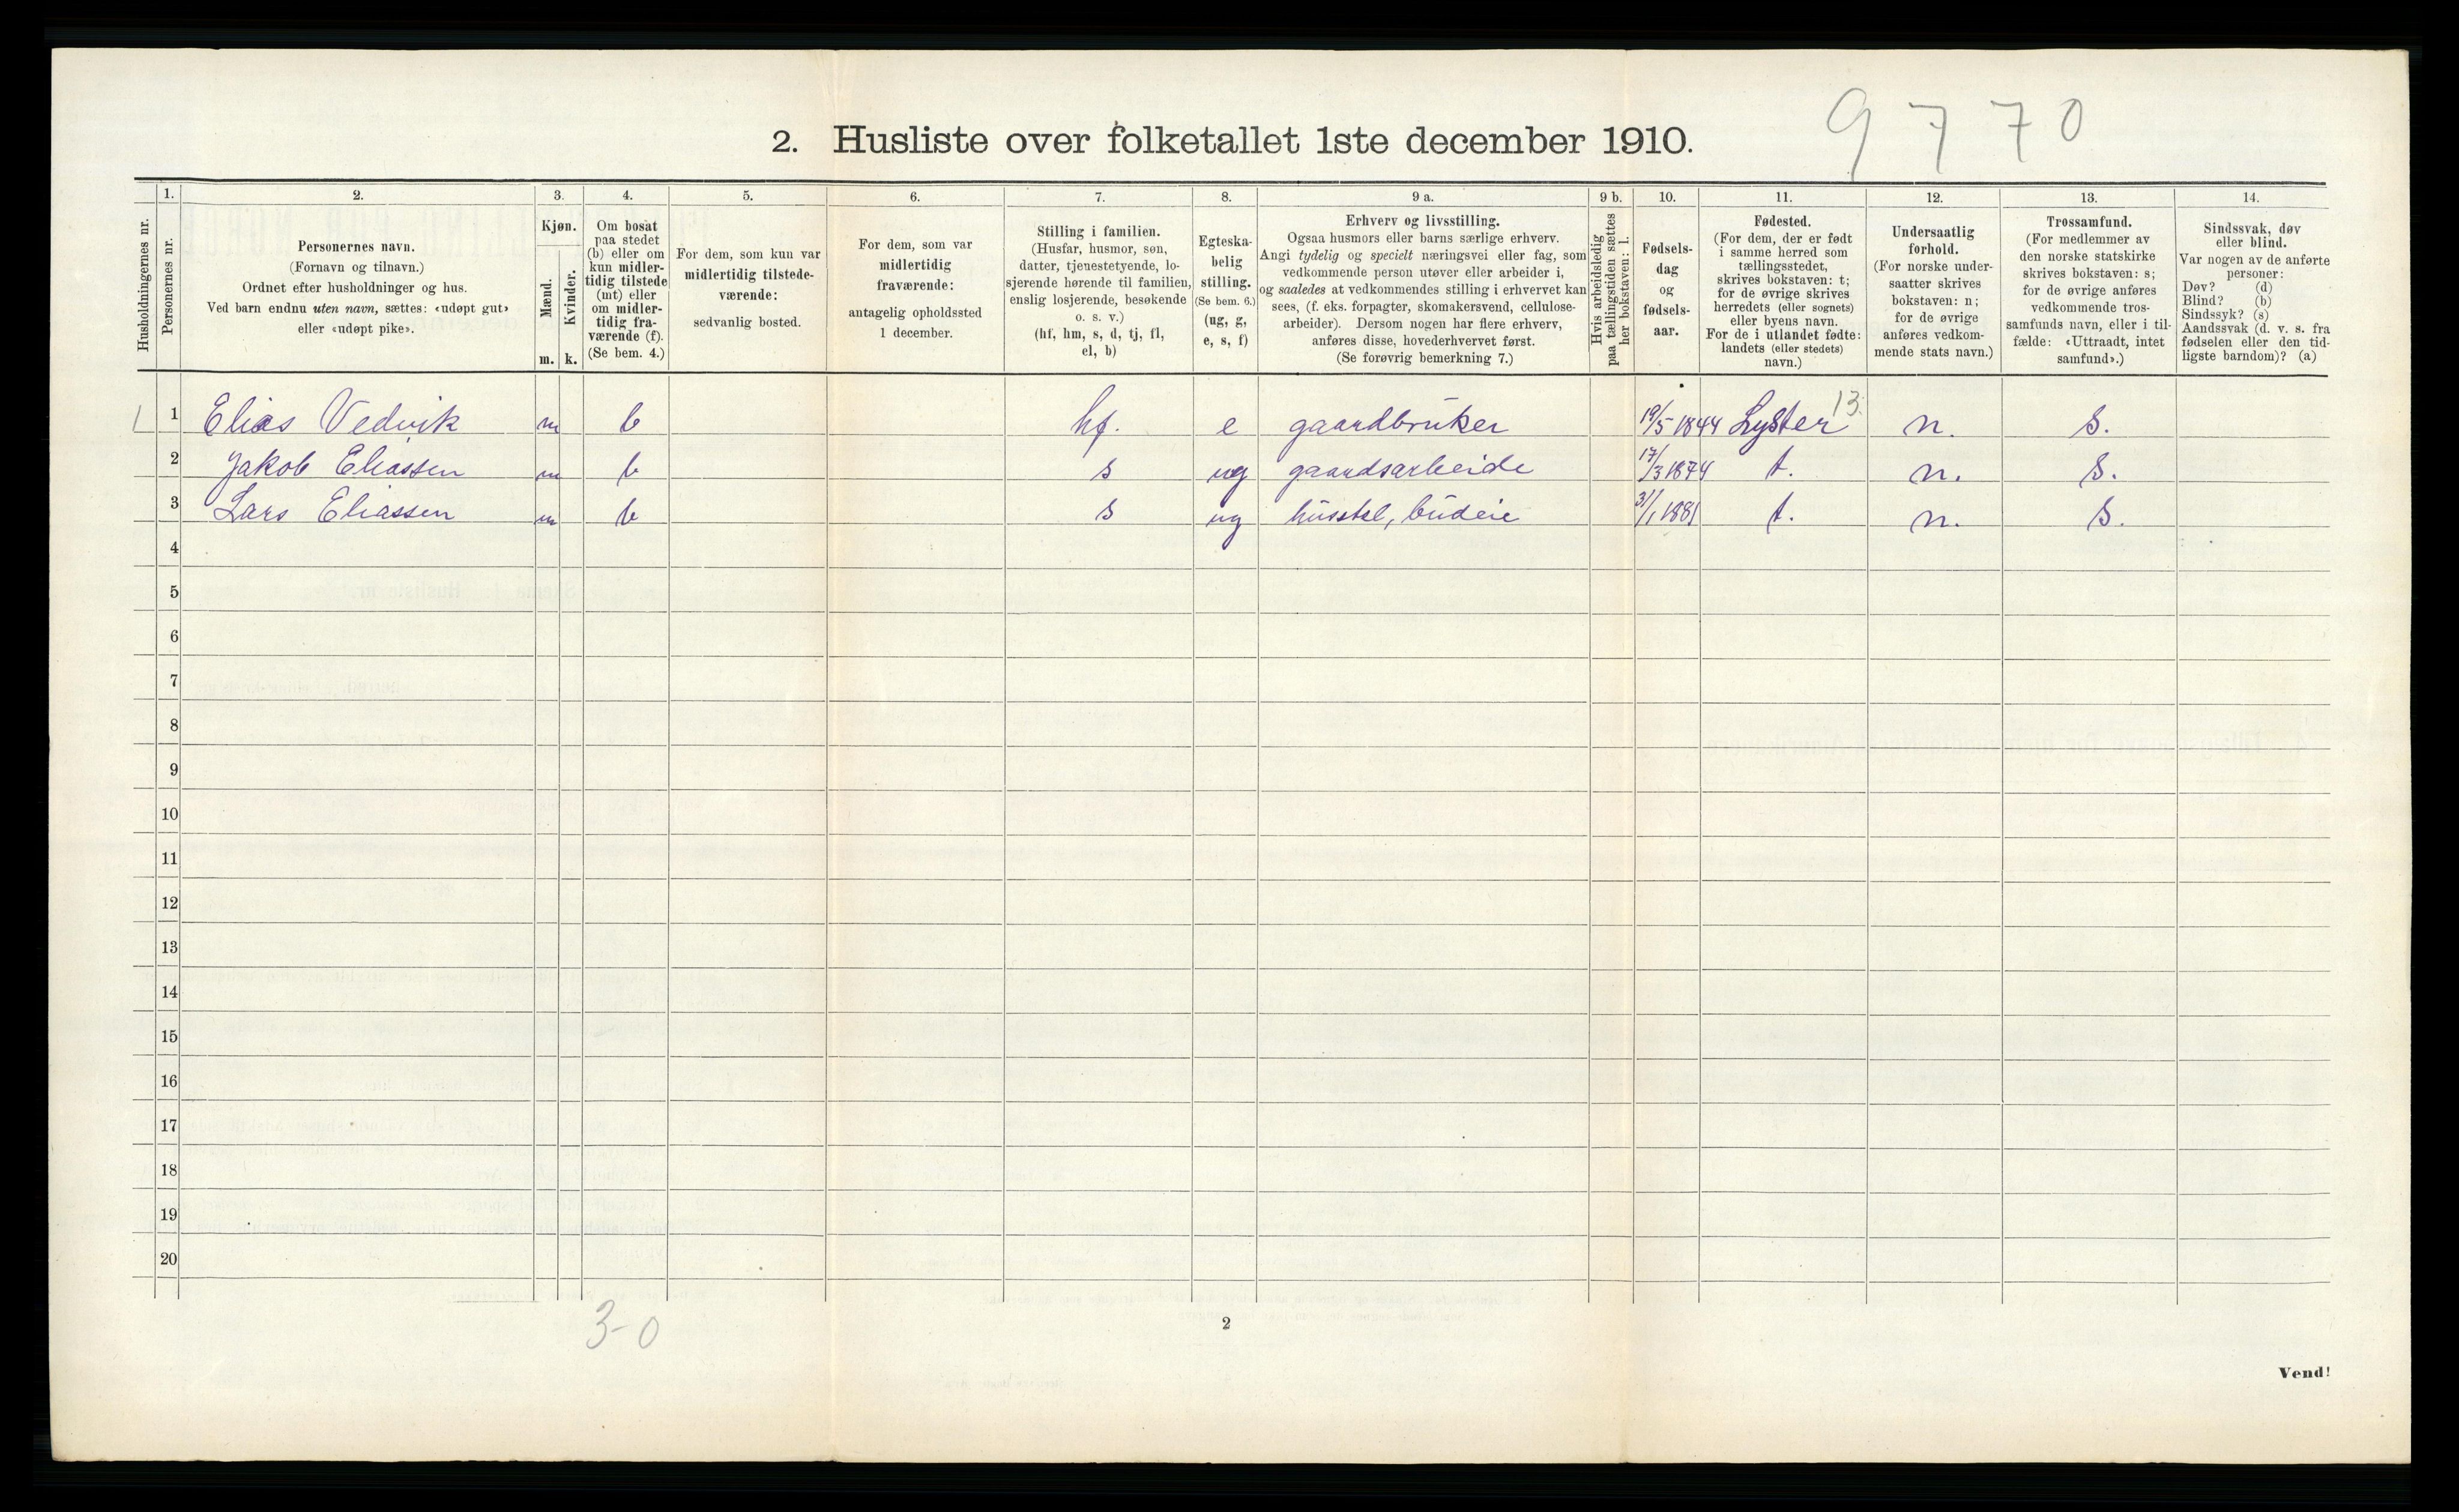 9 7 7 0
2. Husliste over folketallet 1ste december 1910.
Husholdningernes nr.
1.
Personernes nr.
2.
Personernes navn.
(Fornavn og tilnavn.)
Ordnet efter husholdninger og hus.
Ved barn endnu uten navn, sættes: «udøpt gut»
eller «udøpt pike».
3.
Kjøn.
Mænd.
m.
Kvinder.
k.
4.
Om bosat
paa stedet
(b) eller om
kun midler-
tidig tilstede
(mt) eller
om midler-
tidig fra-
værende (f).
(Se bem. 4.)
5.
For dem, som kun var
midlertidig tilstede-
værende:
sedvanlig bosted.
6.
For dem, som var
midlertidig
fraværende:
antagelig opholdssted
1 december.
7.
Stilling i familien.
(Husfar, husmor, søn,
datter, tjenestetyende, lo-
sjerende hørende til familien,
enslig losjerende, besøkende
o. s. v.)
(hf, hm, s, d, tj, fl,
el, b)
8.
Egteska-
belig
stilling.
(Se bem. 6.)
(ug, g,
e, s, f)
9 a.
Erhverv og livsstilling.
Ogsaa husmors eller barns særlige erhverv.
Angi tydelig og specielt næringsvei eller fag, som
vedkommende person utøver eller arbeider i,
og saaledes at vedkommendes stilling i erhvervet kan
sees, (f. eks. forpagter, skomakersvend, cellulose-
arbeider). Dersom nogen har flere erhverv,
anføres disse, hovederhvervet først.
(Se forøvrig bemerkning 7.)
9 b.
Hvis arbeidsledig
paa tællingstiden sættes
her bokstaven: l.
10.
Fødsels-
dag
og
fødsels-
aar.
11.
Fødested.
(For dem, der er født
i samme herred som
tællingsstedet,
skrives bokstaven: t;
for de øvrige skrives
herredets (eller sognets)
eller byens navn.
For de i utlandet fødte:
landets (eller stedets)
navn.)
12.
Undersaatlig
forhold.
(For norske under-
saatter skrives
bokstaven: n;
for de øvrige
anføres vedkom-
mende stats navn.)
13.
Trossamfund.
(For medlemmer av
den norske statskirke
skrives bokstaven: s;
for de øvrige anføres
vedkommende tros-
samfunds navn, eller i til-
fælde: «Uttraadt, intet
samfund».)
14.
Sindssvak, døv
eller blind.
Var nogen av de anførte
personer:
Døv? (d)
Blind? (b)
Sindssyk? (s)
Aandssvak (d. v. s. fra
fødselen eller den tid-
ligste barndom)? (a)
1 1 Elias Vedvik m b hf. e gaardbruker 19/5-1844 Lyster 13 n. s.
2 Jakob Eliassen m b s ug gaardsarbeide 17/3 1874 t. n. s.
3 Lars Eliassen m b s ug husstel, budeie 31/1 1881 t. n. s.
4
5
6
7
8
9
10
11
12
13
14
15
16
17
18
19
20
3-0
2
Vend!